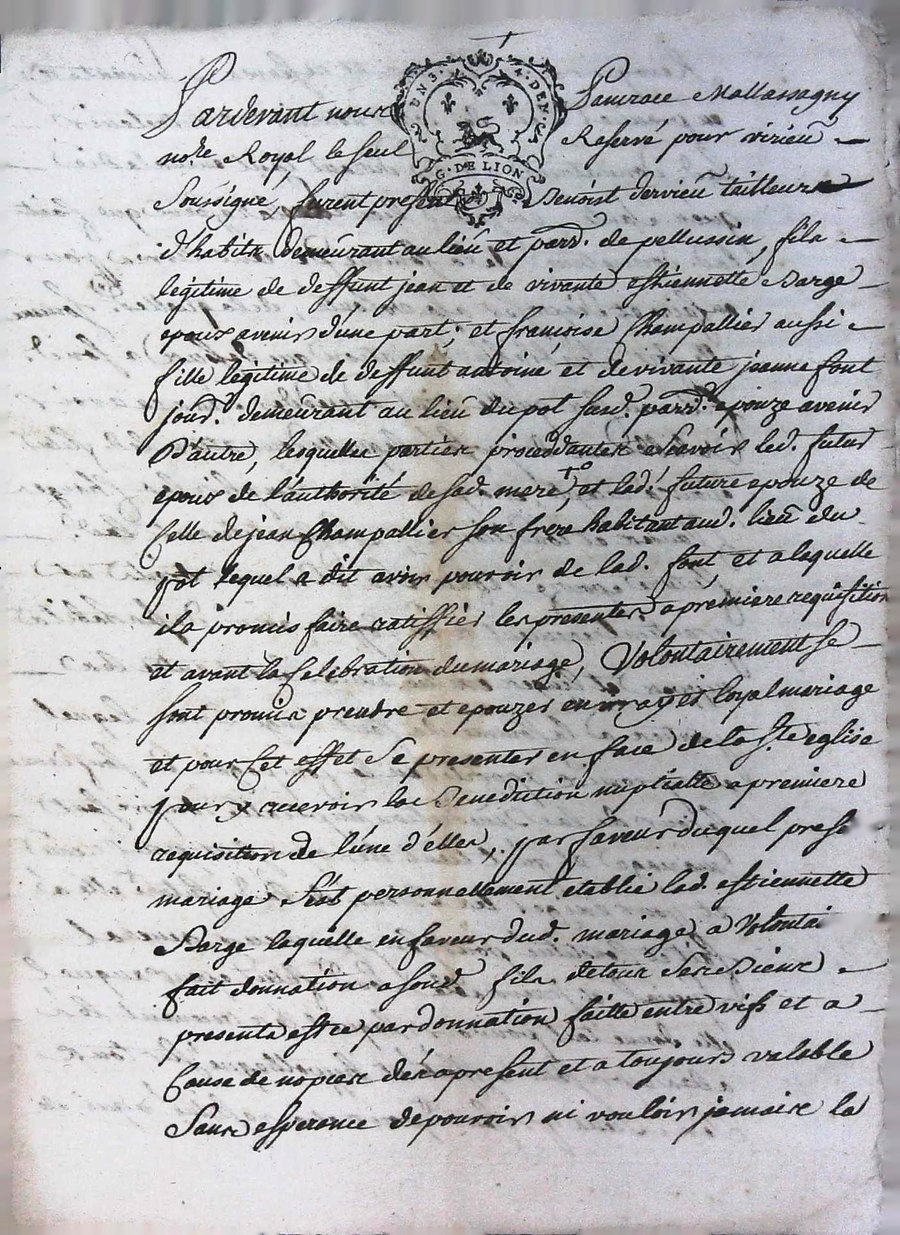 UN 3. 4. DEN.
G. DE LION
Pardevant nous Pancrace Mallassagny
no.re Royal le seul Reservé pour virieu
Soussigné, furent presents Benoist dervieu tailleur
d'habits demeurant au lieu et parr. de pellussin, fils
legitime de deffunt jean et de vivante estiennette Barge
epoux avenir d'une part; et françoise Champallier aussi
fille legitime de deffunt antoine et de vivante jeanne font
jourd. demeurant au lieu du pot susd. parr. epouze avenir
D'autre, lesquelles parties proceddantes scavoir led. futur
epoux de l'authorité de sad. mere, et lad. future epouze de
Celle de jean Champallier son frere habitant aud. lieu du
pot lequel a dit avoir pouvoir de lad. font, et a laquelle
il a promis faire ratiffier les presentes a premiere requisition
et avant la Celebration du mariage, Volontairement se
sont promis prendre et epouzer en vray et loyal mariage
et pour Cet effet Se presenter en face de la S.te eglise
pour y recevoir la Benediction nuptialle a premiere
requisition de l'une d'elles, par faveur duquel pres.t
mariage S'est personnellement etablie lad. estiennette
Barge laquelle en faveur dud. mariage a Volontai
fait donnation a sond. fils de tous ses Biens
presents et ce par donnation faitte entre vifs et a
Cause de nopces des a present et a toujours valable
Sans esperance de pouvoir ni vouloir jamais la